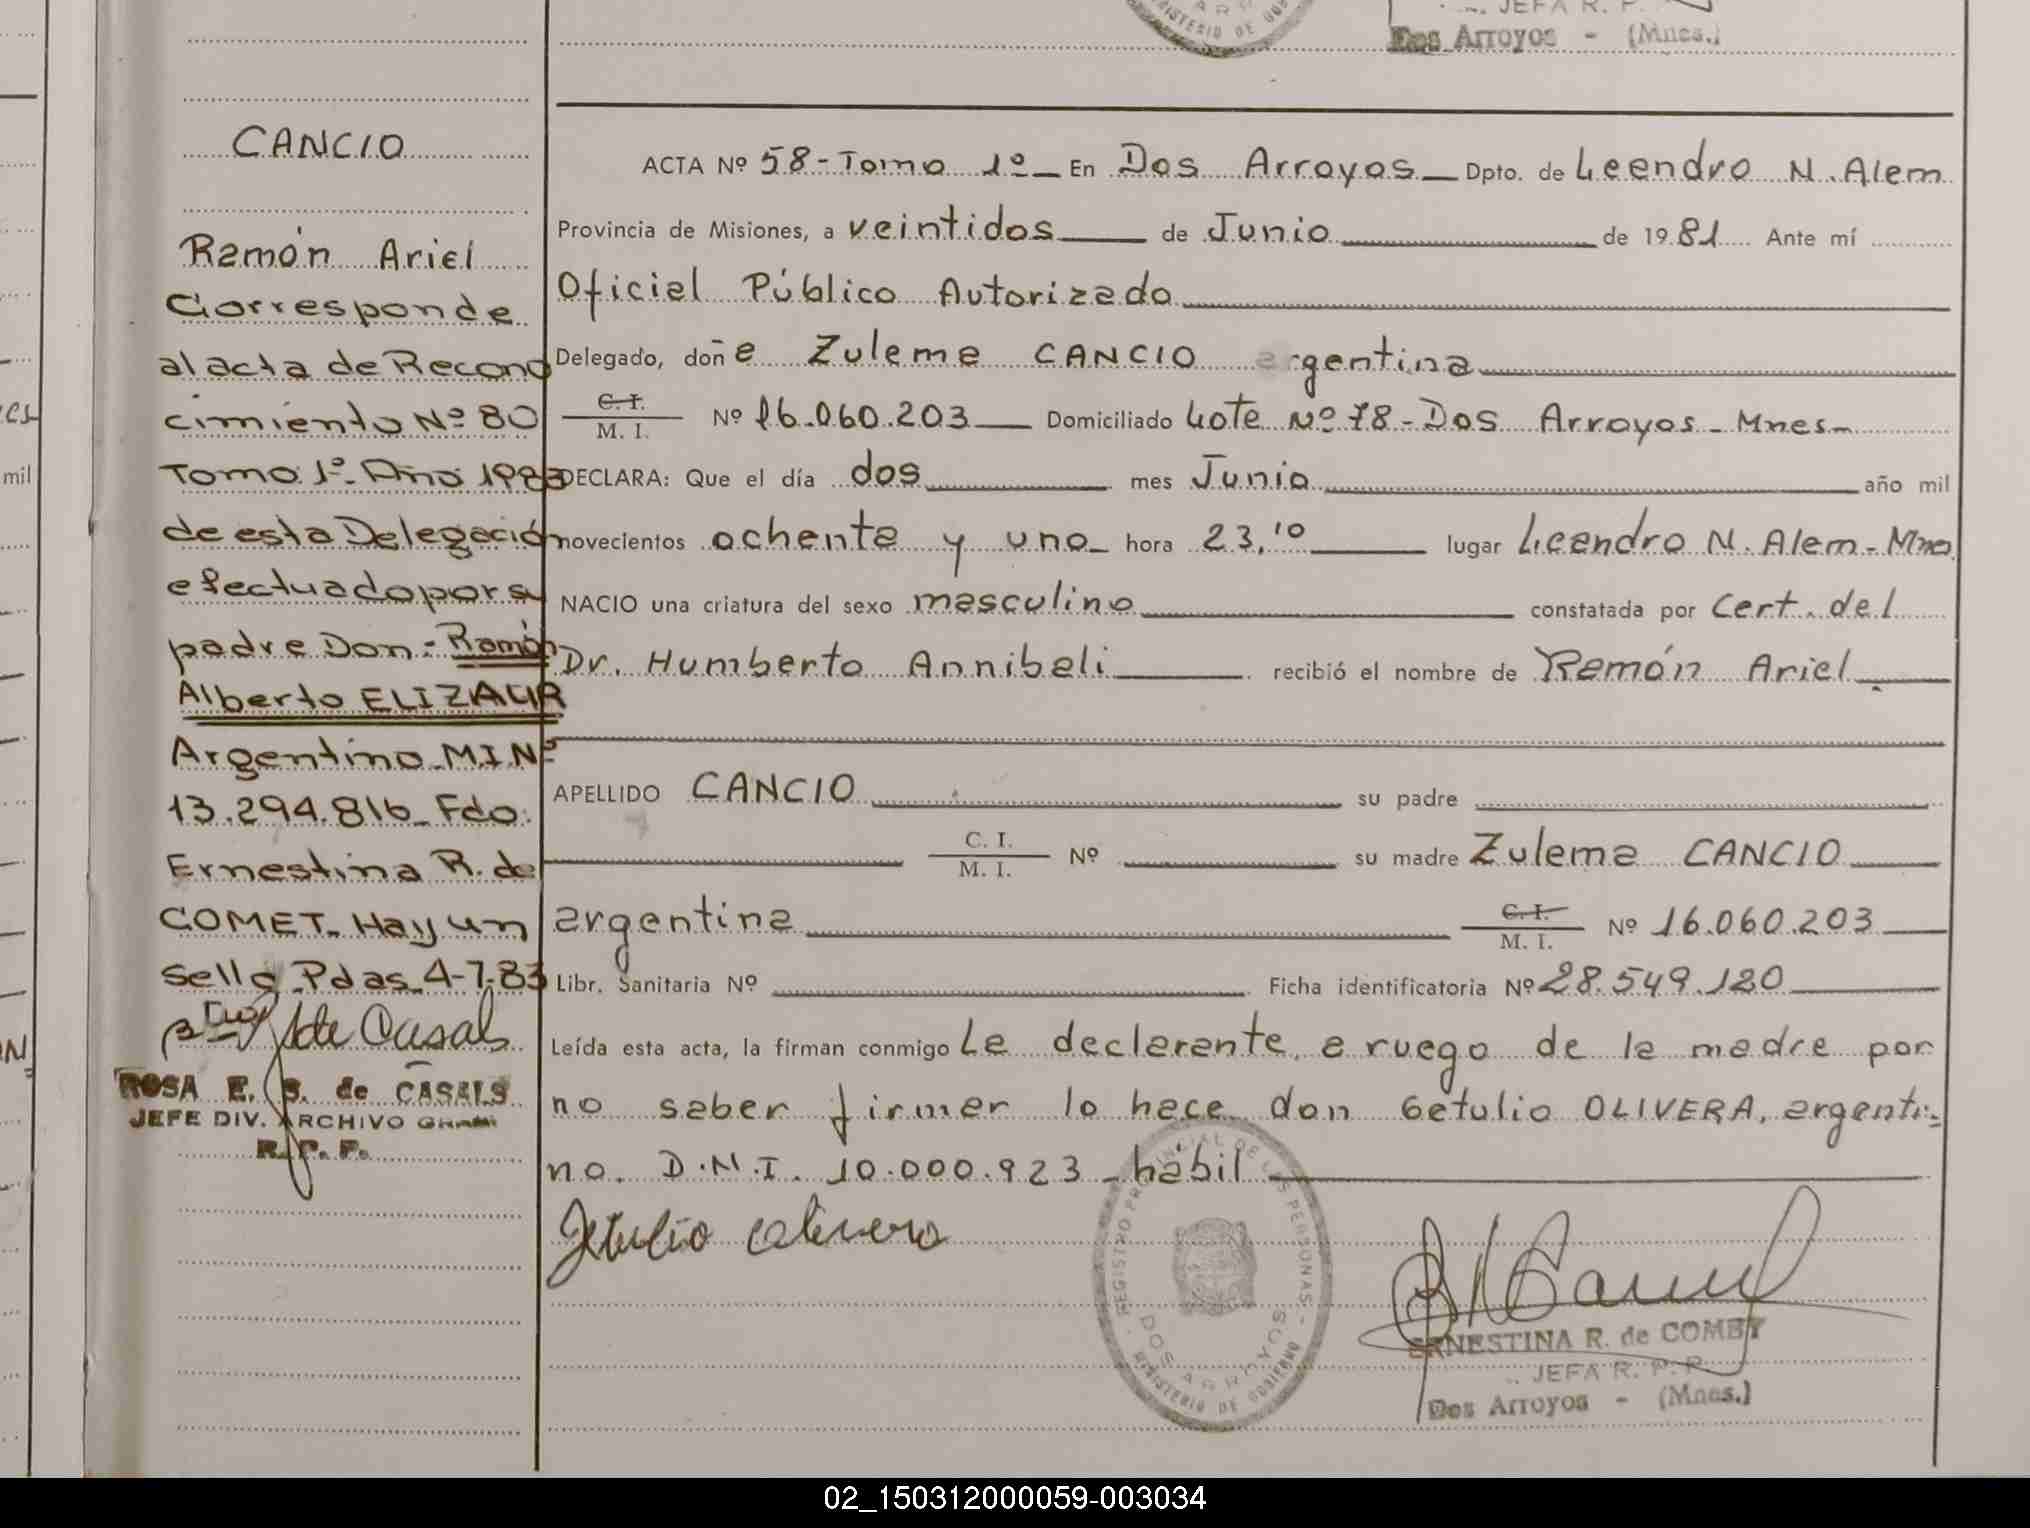 JEFA R. P.
MINISTERIO DE GOB
Dos Arroyos - (Mnes.)
CANCIO
Ramón Ariel
Corresponde
al acta de Recono
cimiento Nº 80
Tomo 1º Año 1983
de esta Delegación
efectuado por su
padre Don: Ramón
Alberto ELIZAUR
Argentino M.I.Nº
13.294.816 Fdo:
Ernestina R. de
COMET. Hay un
sello. Pdas. 4-7-83
de Casals
ROSA E. S. de CASALS
JEFE DIV. ARCHIVO GRAL
R. P. P.
ACTA Nº 58 - Tomo 1º En Dos Arroyos Dpto. de Leandro N. Alem
Provincia de Misiones, a veintidos de Junio de 1981 Ante mí
Oficial Público Autorizado
Delegado, doña Zulema CANCIO argentina
C. I.
M. I. Nº 16.060.203 Domiciliado Lote Nº 78 - Dos Arroyos - Mnes-
DECLARA: Que el día dos mes Junio año mil
novecientos ochenta y uno hora 23,10 lugar Leandro N. Alem - Mnes
NACIO una criatura del sexo masculino constatada por Cert. del
Dr. Humberto Annibali recibió el nombre de Ramón Ariel
APELLIDO CANCIO su padre
C. I.
M. I. Nº su madre Zulema CANCIO
argentina C. I.
M. I. Nº 16.060.203
Libr. Sanitaria Nº Ficha identificatoria Nº 28.549.120
Leída esta acta, la firman conmigo La declarante, a ruego de la madre por
no saber firmar lo hace don Getulio OLIVERA, argenti-
no. D.N.I. 10.000.923 - hábil
Getulio Olivera
REGISTRO PROVINCIAL DE LAS PERSONAS
DOS ARROYOS
MINISTERIO DE GOBIERNO
ERNESTINA R. de COMBY
JEFA R. P. P.
Dos Arroyos - (Mnes.)
02_150312000059-003034